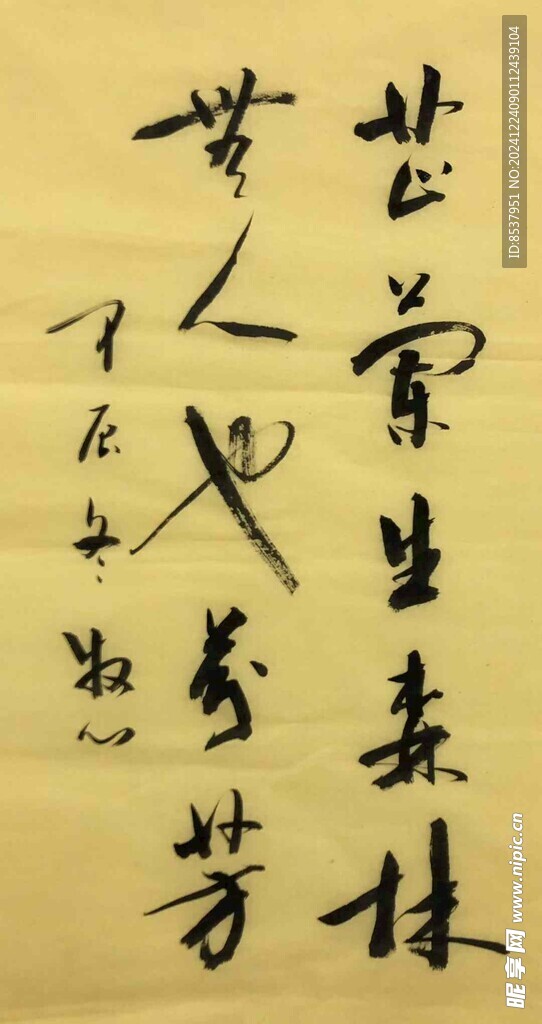 芷蘭生森林
無人也芬芳
甲辰冬 牧心
ID:8537951 NO:20241224090112439104
昵享网 www.nipic.cn